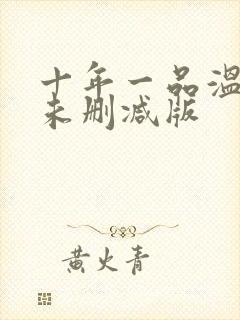 十年一品温
未删减版
黄火青